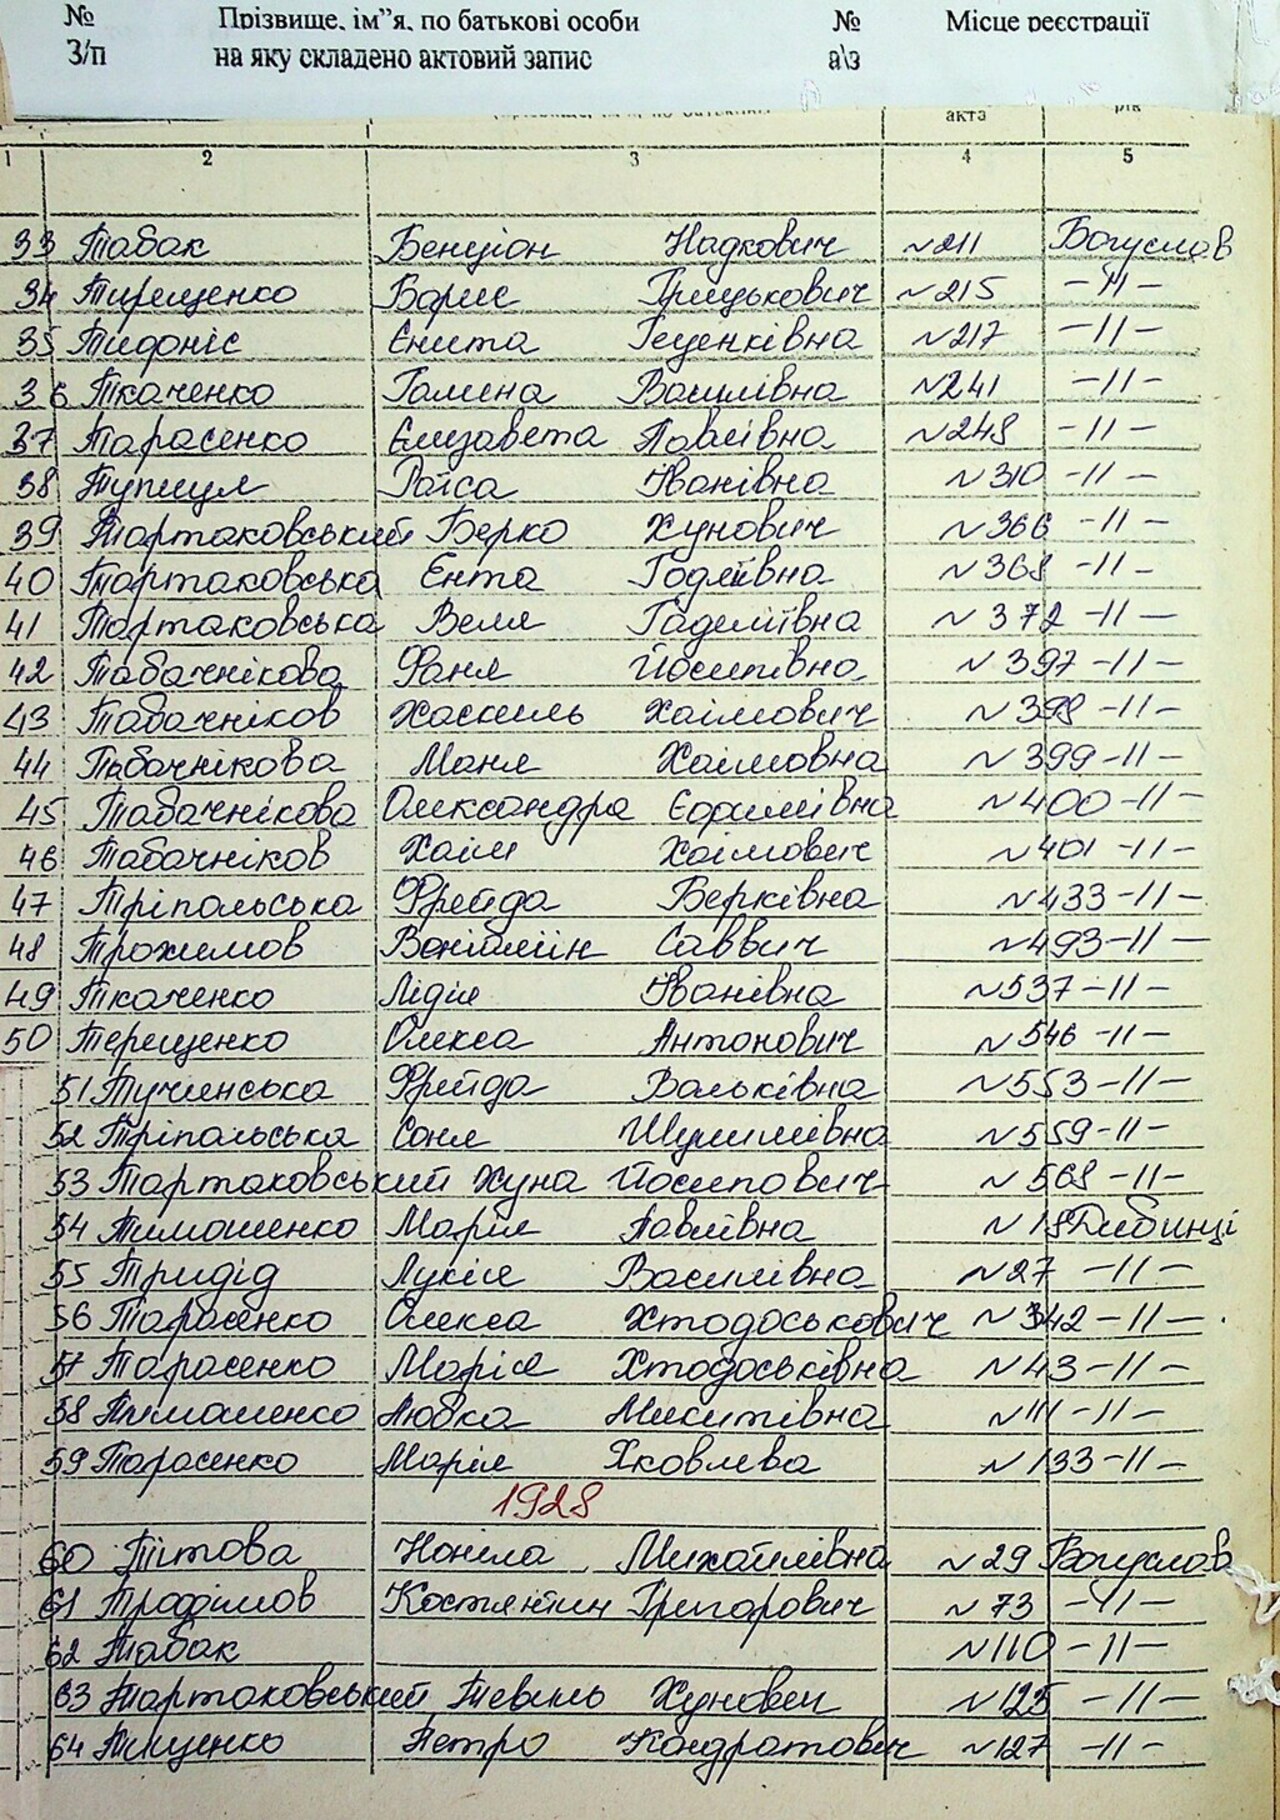 № Прізвище, ім”я, по батькові особи № Місце реєстрації
З/п на яку складено актовий запис а\з
акта рік
1 2 3 4 5
33 Табак Бенціон Надкович №211 Богуслав
34 Тирещенко Борис Грицькович №215 -11-
35 Тидоніс Єнита Геценківна №217 -11-
36 Ткаченко Галина Василівна №241 -11-
37 Тарасенко Єлизавета Павлівна №248 -11-
38 Тупицл Раїса Іванівна №310 -11-
39 Тартаковський Берко Хунович №366 -11-
40 Тартаковська Єнта Годліївна №368 -11-
41 Тартаковська Веля Гаделіївна №372 -11-
42 Табачнікова Фаня Йосипівна №397 -11-
43 Табачніков Хаскель Хаімович №398 -11-
44 Табачнікова Маня Хаімовна №399 -11-
45 Табачнікова Олександра Єфимівна №400 -11-
46 Табачніков Хаім Хаімович №401 -11-
47 Тріпольська Фрейда Берківна №433 -11-
48 Трохимов Веніамін Саввич №493 -11-
49 Ткаченко Лідія Іванівна №537 -11-
50 Терещенко Олекса Антонович №546 -11-
51 Тучинська Фрейда Вольківна №553 -11-
52 Тріпольська Соня Шулимівна №559 -11-
53 Тартаковський Хуна Йосипович №568 -11-
54 Тимошенко Марія Павлівна №18 Дибинці
55 Тридід Лукія Василівна №27 -11-
56 Тарасенко Олекса Хтодоськович №342 -11-
57 Тарасенко Марія Хтодоськівна №43 -11-
58 Тимошенко Любка Микитівна №111 -11-
59 Тарасенко Марія Яковлева №133 -11-
1928
60 Тітова Неніла Михайлівна №29 Богуслав
61 Трофімов Костянтин Григорович №73 -11-
62 Табак №110 -11-
63 Тартаковський Тевель Хунович №125 -11-
64 Тищенко Петро Кондратович №127 -11-